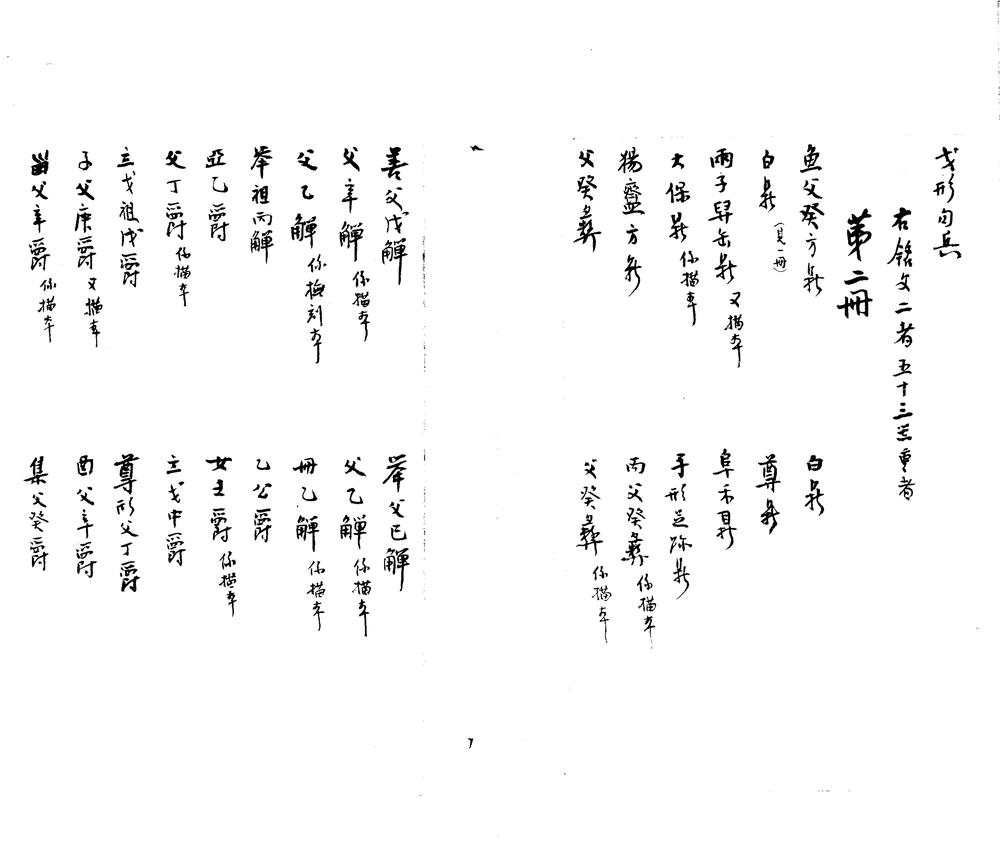 戈形句兵
右銘文二者五十三器重者
第二冊
魚父癸方鼎
白鼎
白鼎（見一冊）
尊鼎
兩子舁缶鼎 又描本
阜禾耳鼎
大保鼎 係描本
手形足跡鼎
楊齍方鼎
丙父癸彝 係描本
父癸彝
父癸彝 係描本
善父戊觶
舉父已觶
父辛觶 係描本
父乙觶 係描本
父乙觶 係檢刻本
冊乙觶 係描本
舉祖丙觶
乙公爵
亞乙爵
女主爵 係描本
父丁爵 係描本
立戈中爵
立戈祖戊爵
尊形父丁爵
子父庚爵 又描本
酉父辛爵
父辛爵 係描本
集父癸爵